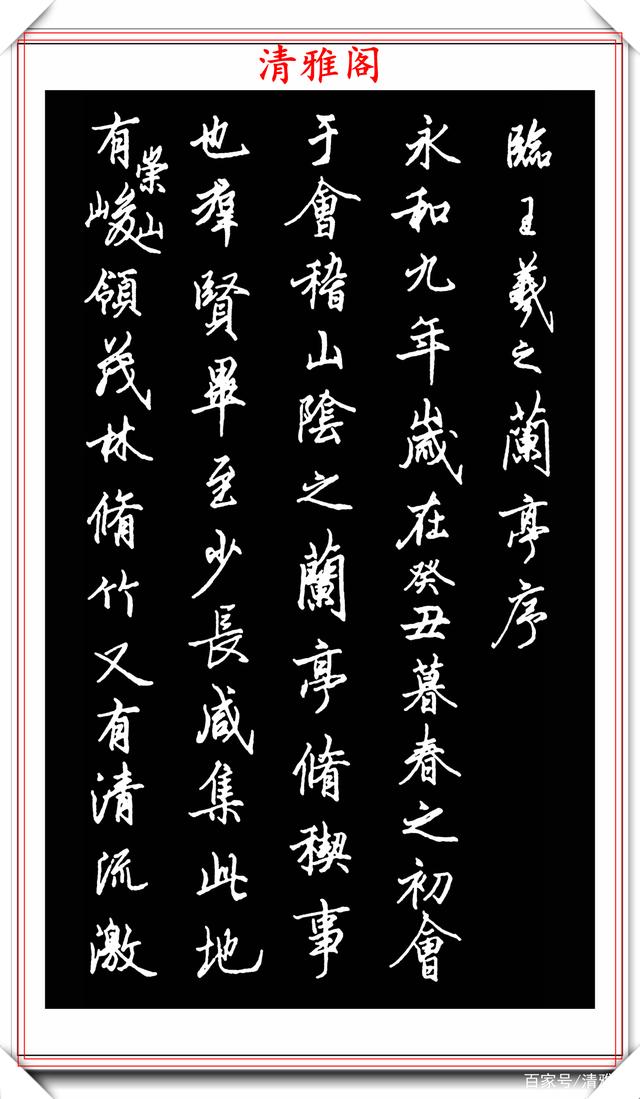 清雅阁
臨王羲之蘭亭序
永和九年歲在癸丑暮春之初會
于會稽山陰之蘭亭脩稧事
也羣賢畢至少長咸集此地
有崇山峻領茂林脩竹又有清流激
百家号/清雅